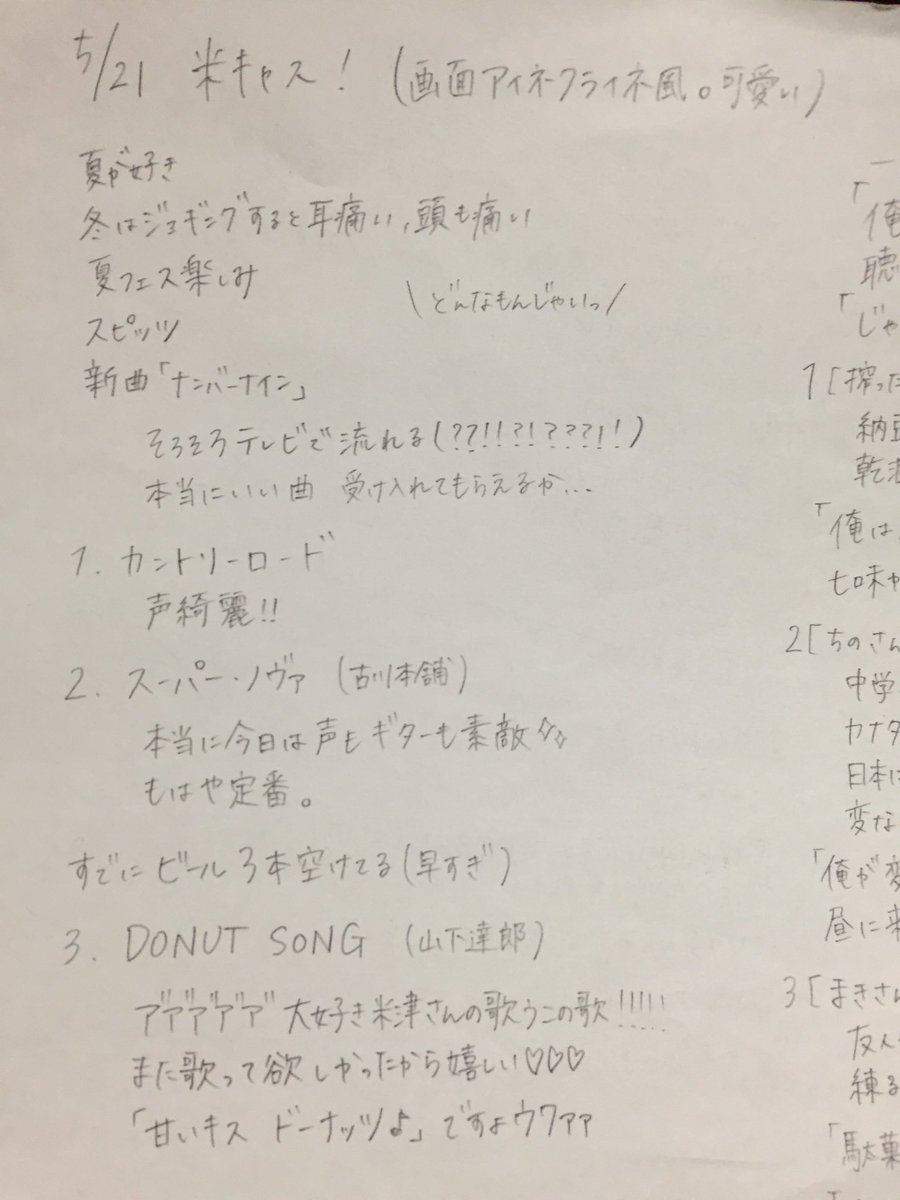 5/21 米キャス! (画面アイネクライネ風。可愛い)
夏が好き
冬はジョギングすると耳痛い,頭も痛い
夏フェス楽しみ
\どんなもんじゃいっ/
スピッツ
新曲「ナンバーナイン」
そろそろテレビで流れる(??!!?!???!!)
本当にいい曲 受け入れてもらえるか...
1. カントリーロード
声綺麗!!
2. スーパー・ノヴァ (古川本舗)
本当に今日は声もギターも素敵✧✧
もはや定番。
すでにビール3本空けてる(早すぎ)
3. DONUT SONG (山下達郎)
ア゙ア゙ア゙ア゙ア゙ 大好き米津さんの歌うこの歌!!!!!
また歌って欲しかったから嬉しい♡♡♡
「甘いキス ドーナッツ♪」ですよウワァァ
「俺
聴
「じゃ
1[搾った
納豆
「俺は
七味や
2[ちのさん
中学
カナダ
日本に
変な
「俺が変
昼に来
3[まきさん
友人
練る
「駄菓